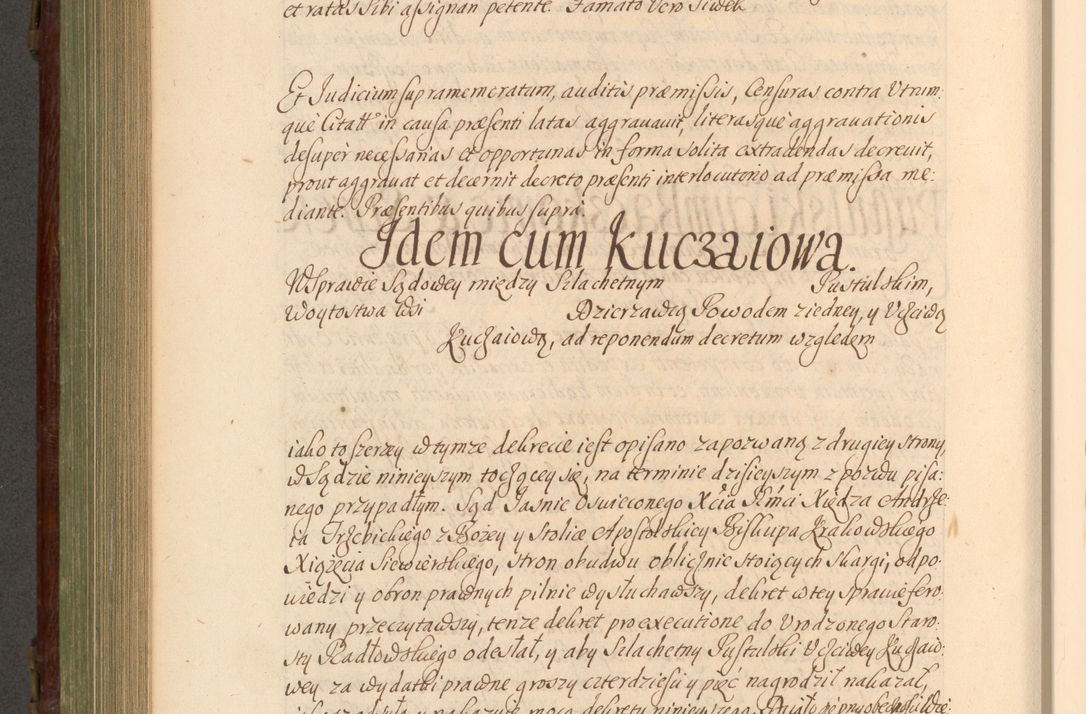 et ratas sibi assignari petente. Famato vero Siwek
Et Judicium supramemoratum, auditis præmissis, Censuras contra Utrum:
què Citatt° in causa præsenti latas aggrauauit, literasquè aggrauationis
desuper necessarias et opportunas in forma solita extradendas decreuit,
prout aggrauat et decernit decreto præsenti interlocutorio ad præmissa me:
diante. Præsentibus quibus supra.
Idem cum Kuczaiowa.
W Sprawie Sądowey między Szlachetnym Pustulskim,
Woytostwa Wsi Dzierzawcą Powodem z iedney, y Uczciwą
Kuczaiową, ad reponendum decretum względem
iako to szerzey w tymze dekrecie iest opisano zapozwaną z drugiey strony,
w Sądzie ninieyszym toczącey się, na terminie dzisieyszym z pozwu pisa:
nego przypadłym. Sąd Jasnie Oswieconego Xcia Jmći Xiędza Andrze:
ia Trzebickiego z Bozey y Stolice Apostolskiey Biskupa Krakowskiego
Xiążęcia Siewierskiego, stron obudwu oblicznie stoiących skargi, odpo:
wiedzi y obron prawnych pilnie wysłuchawszy, dekret w tey sprawie fero:
wany przeczytawszy, tenze dekret pro executione do Urodzonego Staro:
sty Radłowskiego odesłał, y aby Szlachetny Pustulski Uczciwey Kuczaio:
wey za wydatki prawne groszy czterdziesci y pięć nagrodził nakazał,
y nakazuie mocą dekretu ninieyszego.